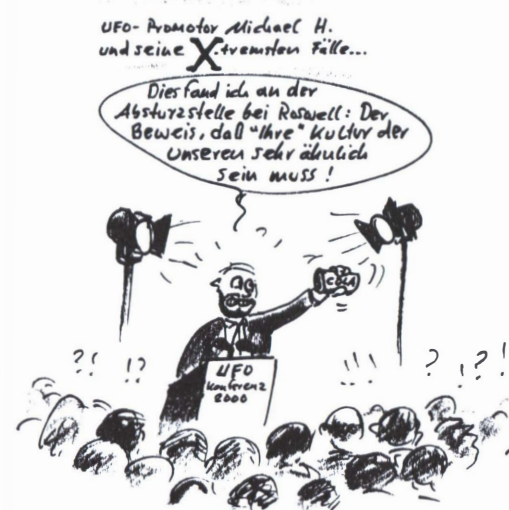 UFO-Promotor Michael H.
und seine X-tremsten Fälle...
Dies fand ich an der
Absturzstelle bei Roswell: Der
Beweis, daß "Ihre" Kultur der
unseren sehr ähnlich
sein muss!
COLA
?! !?
!!!
? !?!
UFO
Konferenz
2000